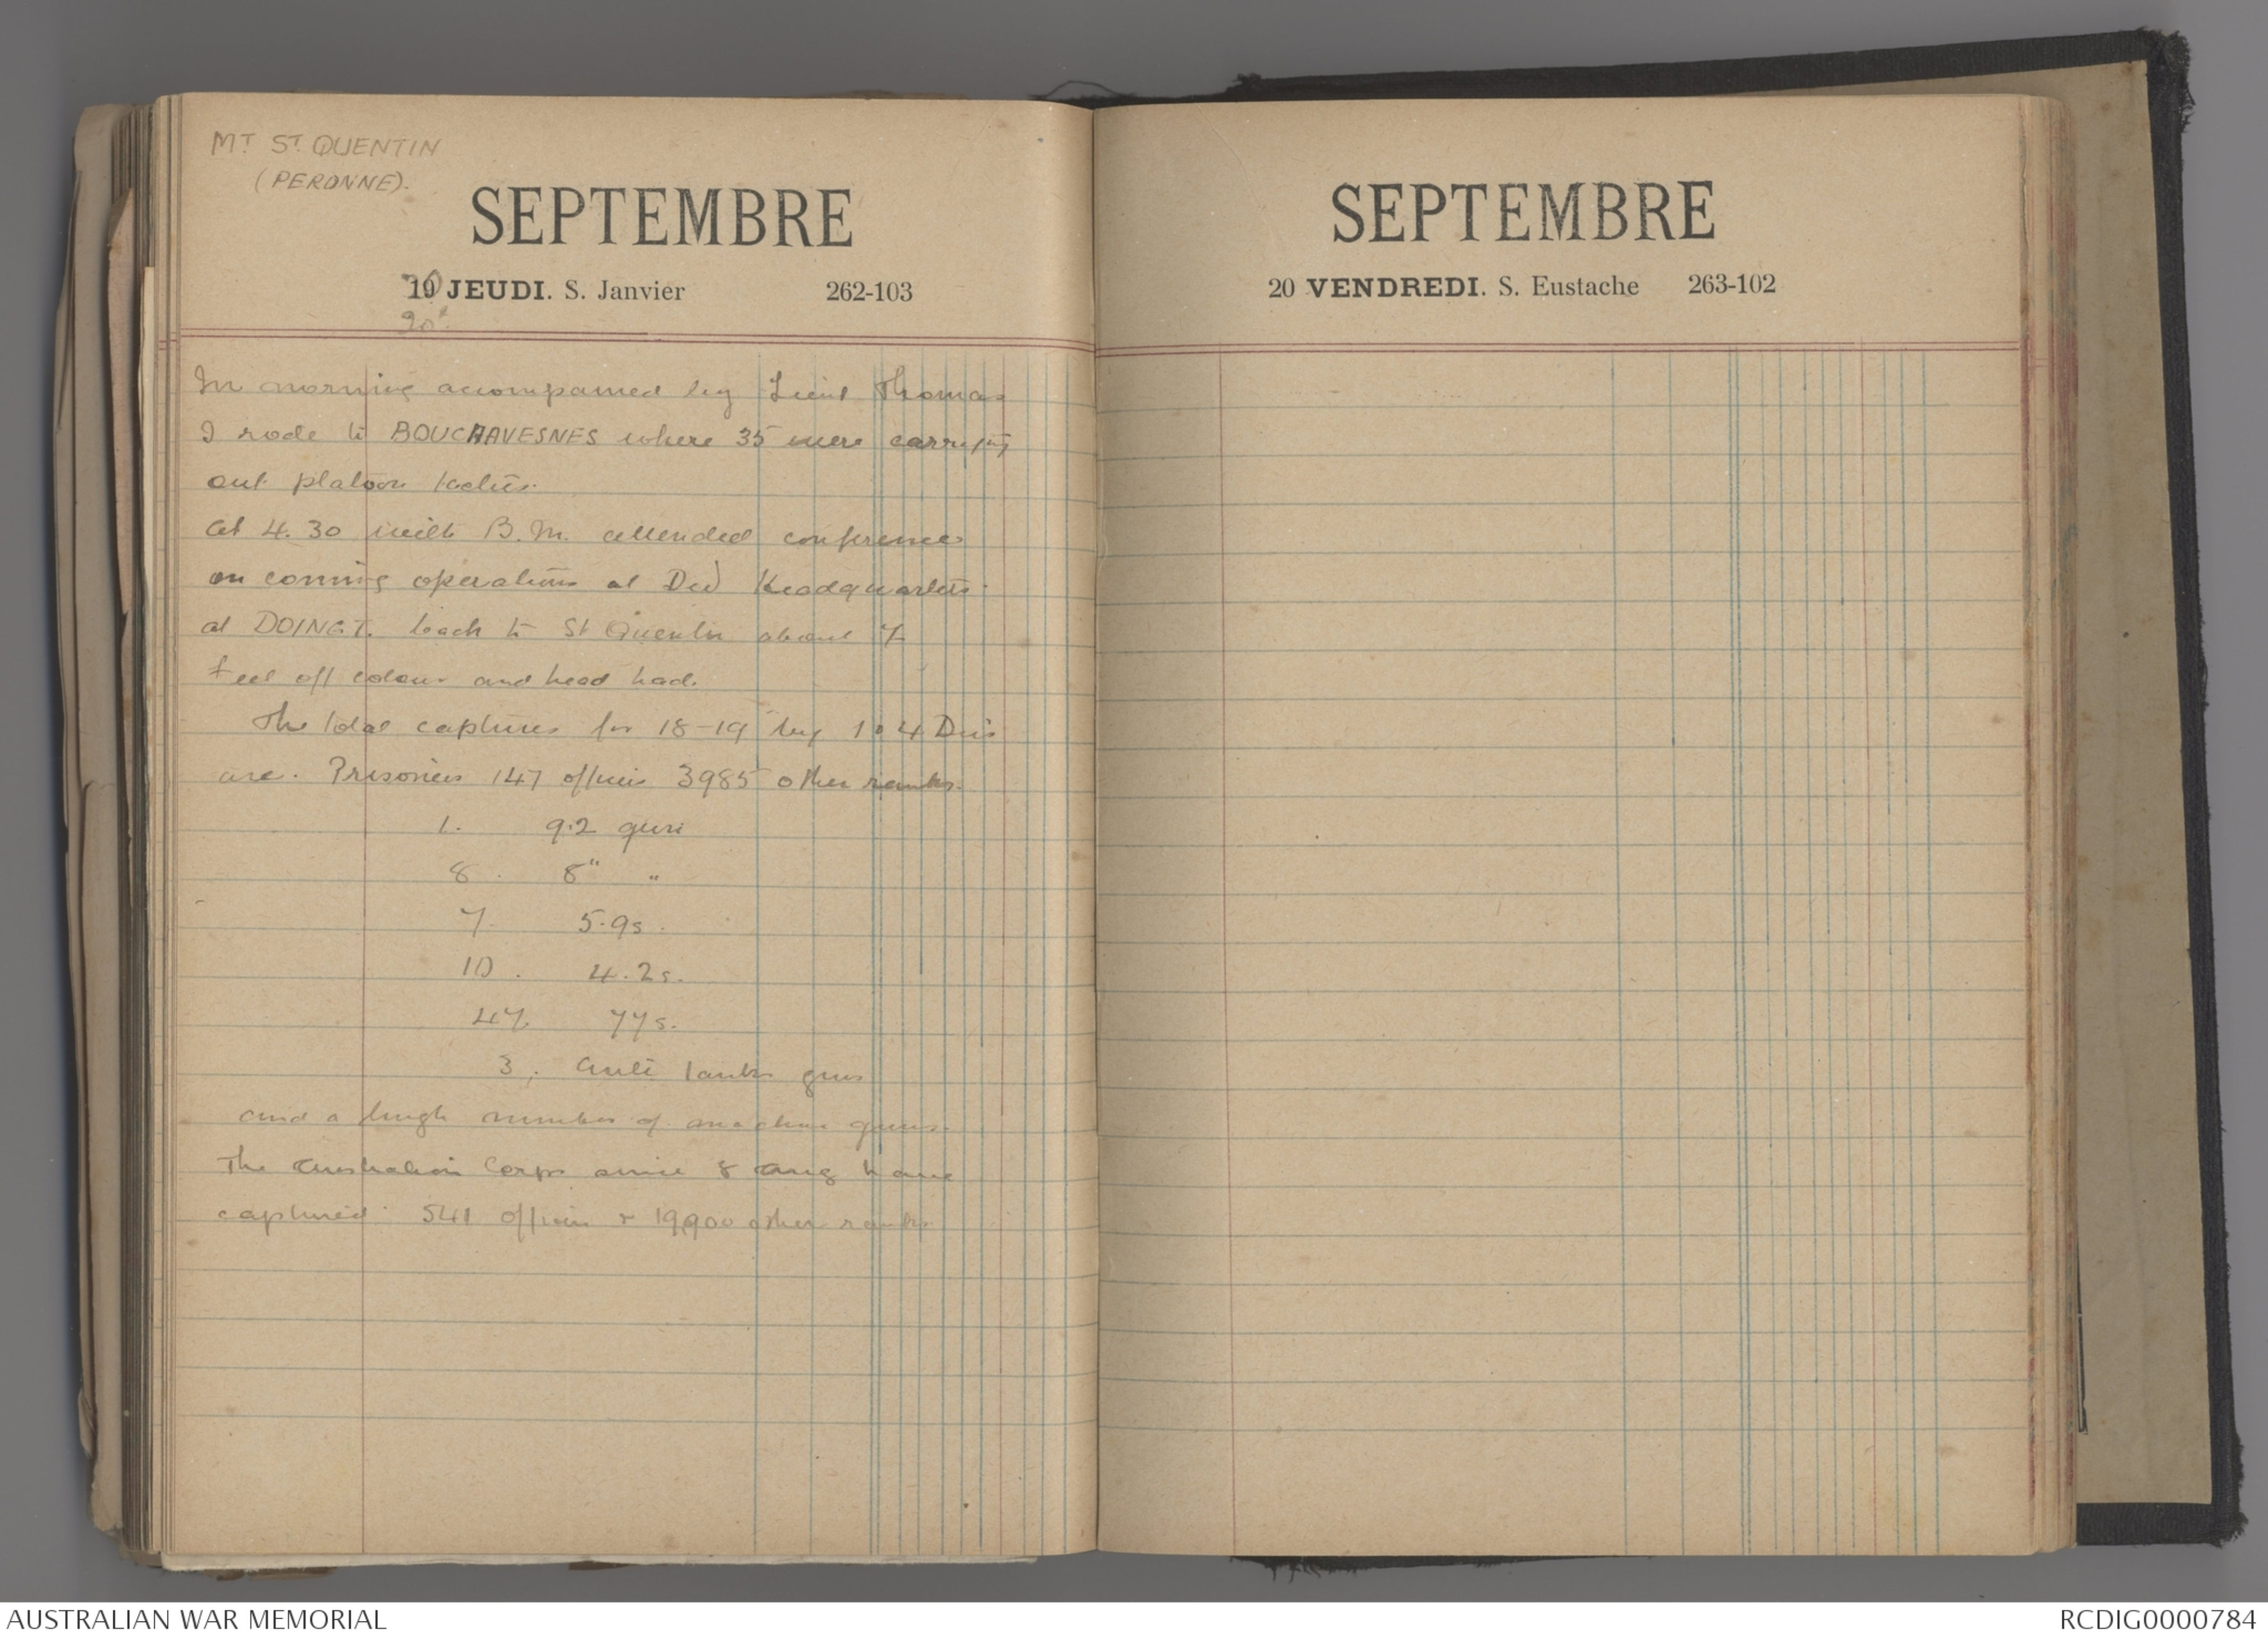 MT ST QUENTIN
(PERONNE).
SEPTEMBRE
JEUDI. S. Janvier 262-103
20t
In morning accompanied by Lieut Thomas
I rode to BOUCHAVESNES where 35 were carrying
out platoon tactics.
At 4.30 with B.M. attended conference
on coming operations at Div Headquarters
at DOINGT. back to St Quentin about 7
feel off colour and head bad.
The total captures for 18-19 by 1 & 4 Divs
are. Prisoners 147 officers 3985 other ranks.
1. 9.2 guns
8. 8" "
7. 5.9s.
10. 4.2s.
47. 77s.
3. Anti tanks guns
and a hugh number of machine guns.
The Australian Corps since 8 Aug have
captured 541 officers & 19,900 other ranks.
SEPTEMBRE
20 VENDREDI. S. Eustache 263-102
AUSTRALIAN WAR MEMORIAL
RCDIG0000784